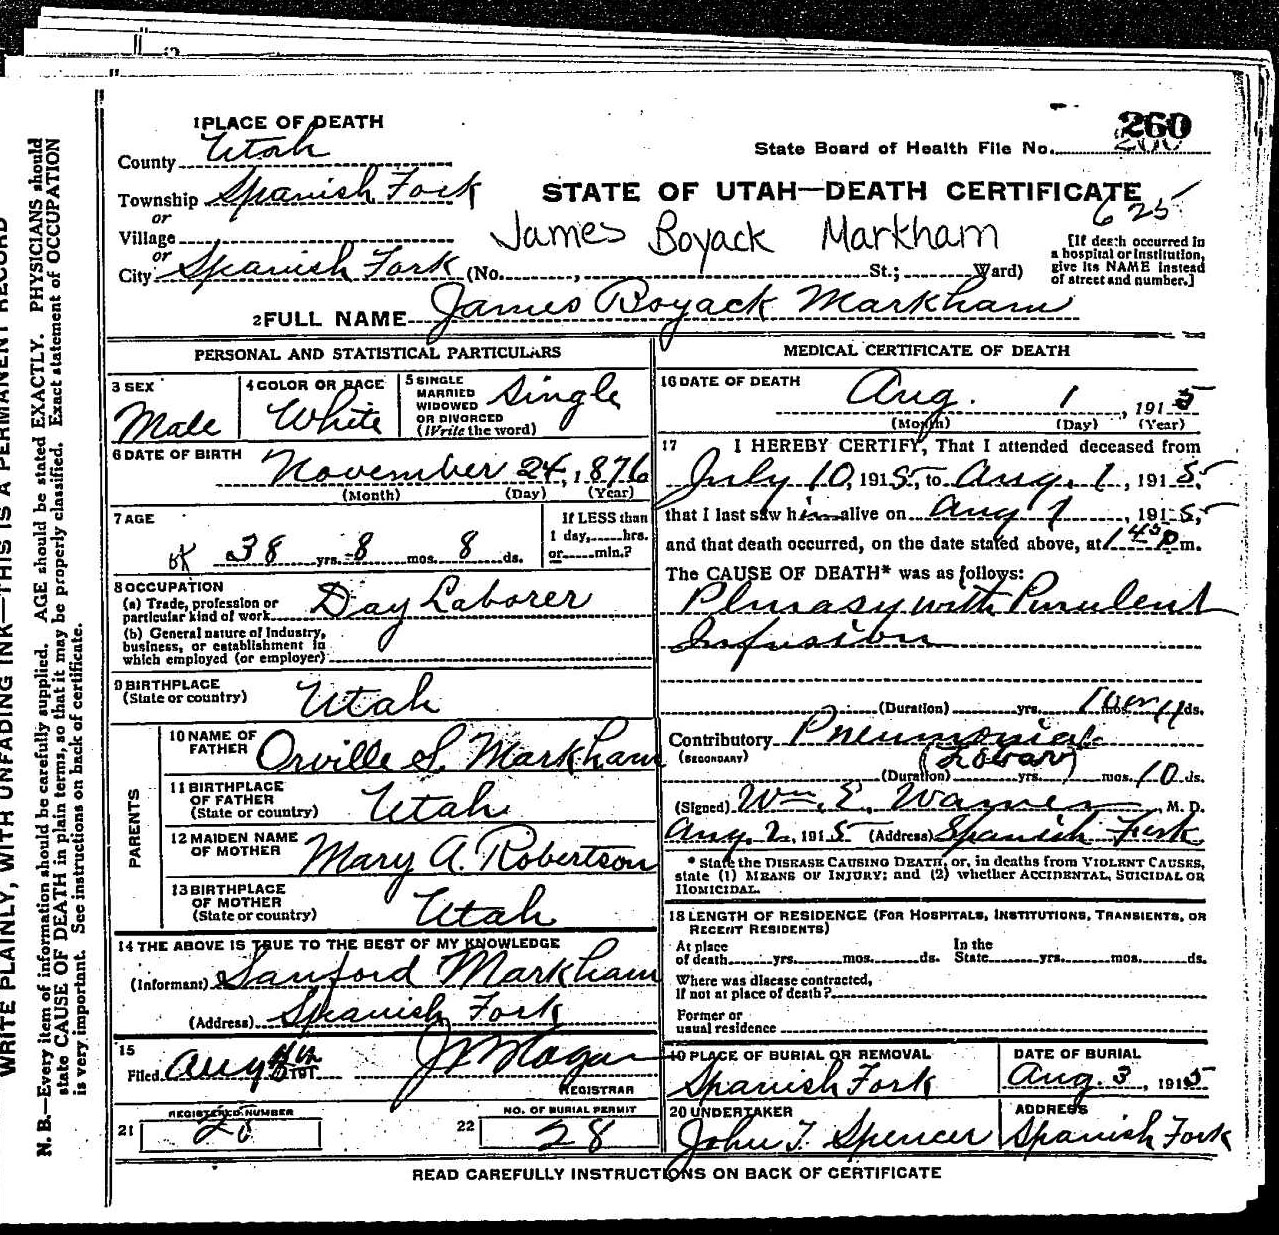 WRITE PLAINLY, WITH UNFADING INK—THIS IS A PERMANENT RECORD
N. B.—Every item of information should be carefully supplied. AGE should be stated EXACTLY. PHYSICIANS should
state CAUSE OF DEATH in plain terms, so that it may be properly classified. Exact statement of OCCUPATION
is very important. See instructions on back of certificate.
1 PLACE OF DEATH
County Utah
Township Spanish Fork
or
Village
or
City Spanish Fork (No. , St.; Ward)
260
State Board of Health File No. 260
STATE OF UTAH—DEATH CERTIFICATE
625
James Boyack Markham
[If death occurred in
a hospital or institution,
give its NAME instead
of street and number.]
2 FULL NAME James Boyack Markham
PERSONAL AND STATISTICAL PARTICULARS
3 SEX
Male
4 COLOR OR RACE
White
5 SINGLE
MARRIED
WIDOWED
OR DIVORCED
(Write the word)
Single
6 DATE OF BIRTH
November 24, 1876
(Month) (Day) (Year)
7 AGE
ok 38 yrs. 8 mos. 8 ds.
If LESS than
1 day, hrs.
or min.?
8 OCCUPATION
(a) Trade, profession or
particular kind of work Day Laborer
(b) General nature of Industry,
business, or establishment in
which employed (or employer)
9 BIRTHPLACE
(State or country) Utah
PARENTS
10 NAME OF
FATHER Orville S. Markham
11 BIRTHPLACE
OF FATHER
(State or country) Utah
12 MAIDEN NAME
OF MOTHER Mary A. Robertson
13 BIRTHPLACE
OF MOTHER
(State or country) Utah
14 THE ABOVE IS TRUE TO THE BEST OF MY KNOWLEDGE
(Informant) Sanford Markham
(Address) Spanish Fork
15
Filed Aug 191
REGISTRAR
REGISTERED NUMBER
21
NO. OF BURIAL PERMIT
22 28
MEDICAL CERTIFICATE OF DEATH
16 DATE OF DEATH
Aug. 1, 1915
(Month) (Day) (Year)
17 I HEREBY CERTIFY, That I attended deceased from
July 10, 1915, to Aug. 1, 1915,
that I last saw him alive on Aug 1, 1915,
and that death occurred, on the date stated above, at 1 45 p m.
The CAUSE OF DEATH* was as follows:
Plurasy with Purulent
Infusion
(Duration) yrs. mos. ds.
Contributory Pneumonia
(SECONDARY) (Lobar)
(Duration) yrs. mos. 10 ds.
(Signed) Wm. E. Warner, M. D.
Aug. 2, 1915 (Address) Spanish Fork
* State the DISEASE CAUSING DEATH, or, in deaths from VIOLENT CAUSES,
state (1) MEANS OF INJURY; and (2) whether ACCIDENTAL, SUICIDAL OR
HOMICIDAL.
18 LENGTH OF RESIDENCE (FOR HOSPITALS, INSTITUTIONS, TRANSIENTS, OR
RECENT RESIDENTS)
At place
of death yrs. mos. ds.
In the
State yrs. mos. ds.
Where was disease contracted,
if not at place of death?
Former or
usual residence
19 PLACE OF BURIAL OR REMOVAL
Spanish Fork
DATE OF BURIAL
Aug. 3, 1915
20 UNDERTAKER
John T. Spencer
ADDRESS
Spanish Fork
READ CAREFULLY INSTRUCTIONS ON BACK OF CERTIFICATE